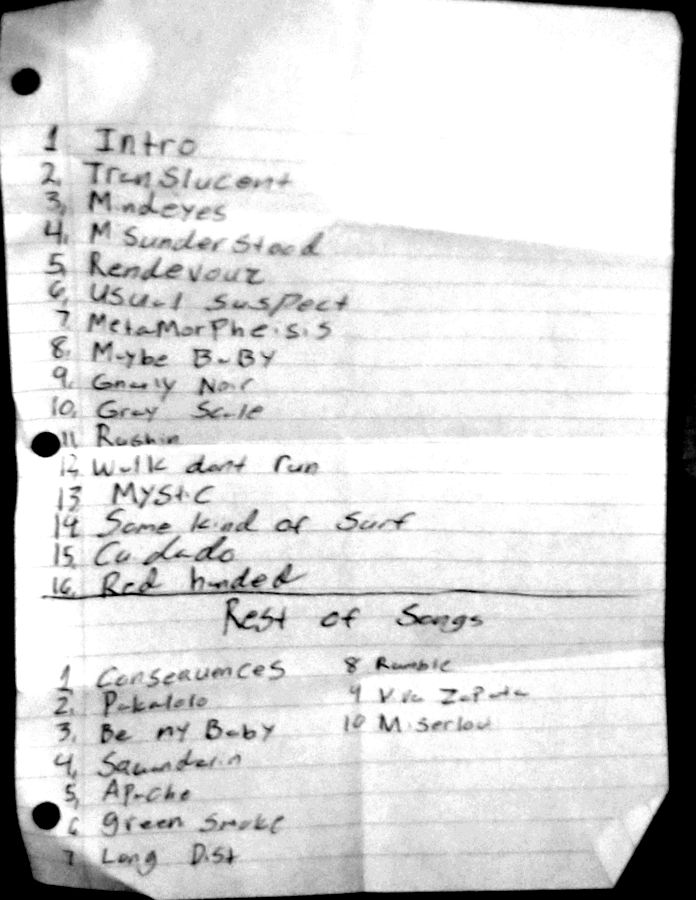 1 Intro
2. Translucent
3. Mindeyes
4. Misunderstood
5. Rendevouz
6. Usual suspect
7 MetaMorPheisis
8. Maybe BaBY
9. Gnarly Noir
10. Gray Scale
11 Rushin
12 Walk dont run
13 MYStiC
14 Some kind of Surf
15. Cuidado
16. Red handed
Rest of Songs
1 Consequences
2. Pakalolo
3. Be my Baby
4.
5. Apache
6 green smoke
7 Long Dist
8 Rumble
9 Viva Zapata
10 Miserlou